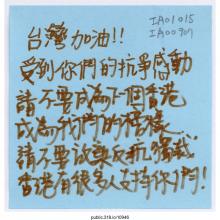 IA01015
IA00901
台灣加油!!
受到你們的抗爭感動
請不要成為下一個香港
成為我們的榜樣
請不要放棄反抗獨裁
香港有很多人支持你們!
public.318.io/10946